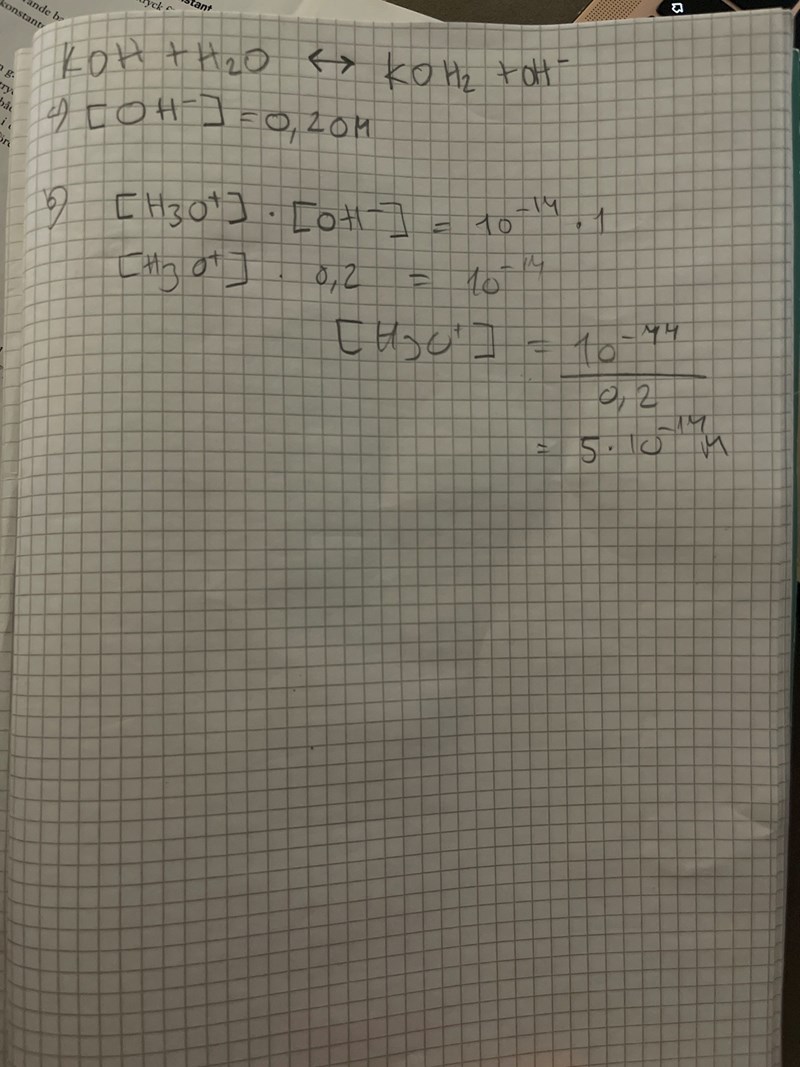 stant
konstant
KOH + H2O ↔ KOH2 + OH⁻
a) [OH⁻] = 0,20M
b) [H3O⁺] · [OH⁻] = 10⁻¹⁴ · 1
[H3O⁺] · 0,2 = 10⁻¹⁴
[H3O⁺] = 10⁻¹⁴
0,2
= 5 · 10⁻¹⁴ M